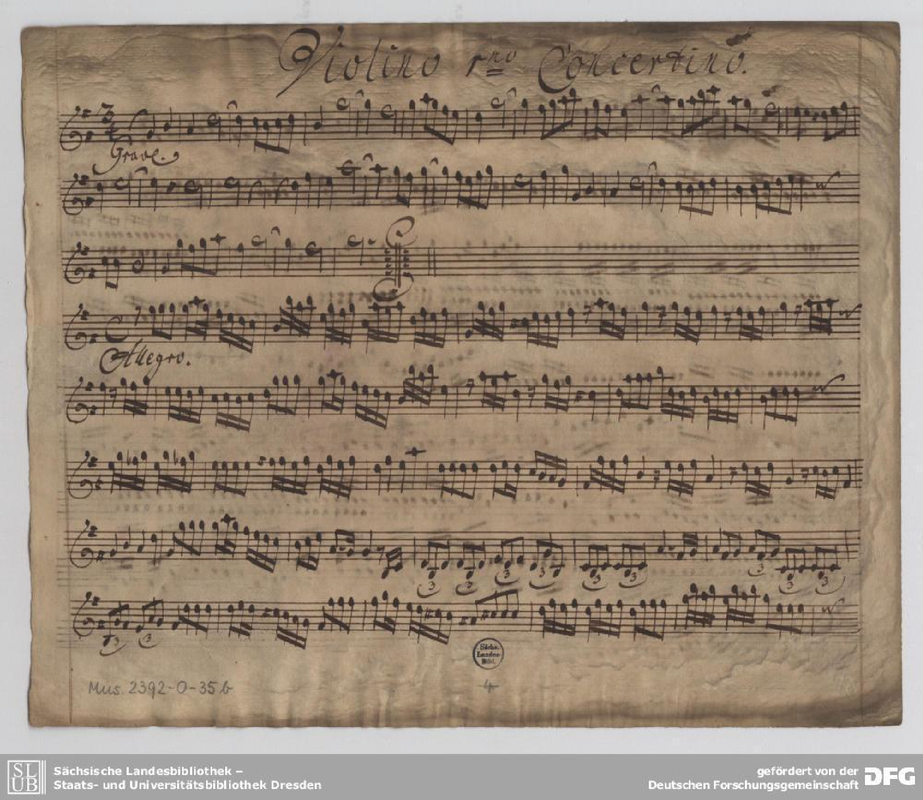 Violino 1mo Concertino.
3
4
Grave.
Allegro.
3 3 3 3 3 3 3 3 3
3 3
Sächs.
Landes-
Bibl.
Mus. 2392-O-35b
4
SLUB
Sächsische Landesbibliothek –
Staats- und Universitätsbibliothek Dresden
gefördert von der
Deutschen Forschungsgemeinschaft
DFG